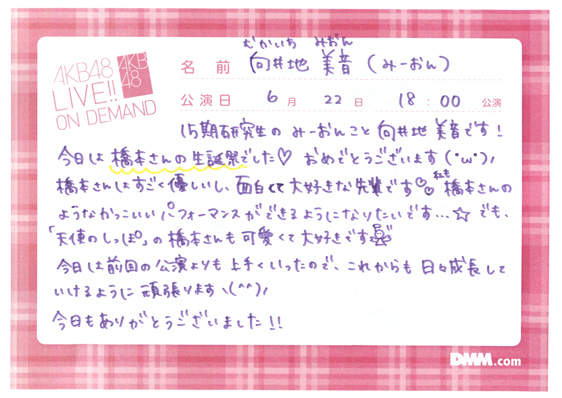 AKB48
LIVE!!
ON DEMAND
AKB
48
むかいち みおん
名 前 向井地 美音 (みーおん)
公演日 6 月 22 日 18 : 00 公演
15期研究生の みーおんこと 向井地 美音です!
今日は 橋本さんの 生誕祭でした♡ おめでとうございます(・ω・)ノ
橋本さんはすごく優しいし、面白くて大好きな先輩です♡♡ 橋本さんの
ようなかっこいいパフォーマンスができるようになりたいです...☆ でも、
「天使のしっぽ」の橋本さんも可愛くて大好きです
今日は前回の公演よりも上手くいったので、これからも日々成長して
いけるように頑張りますヽ(^^)ノ
今日もありがとうございました!!
DMM.com